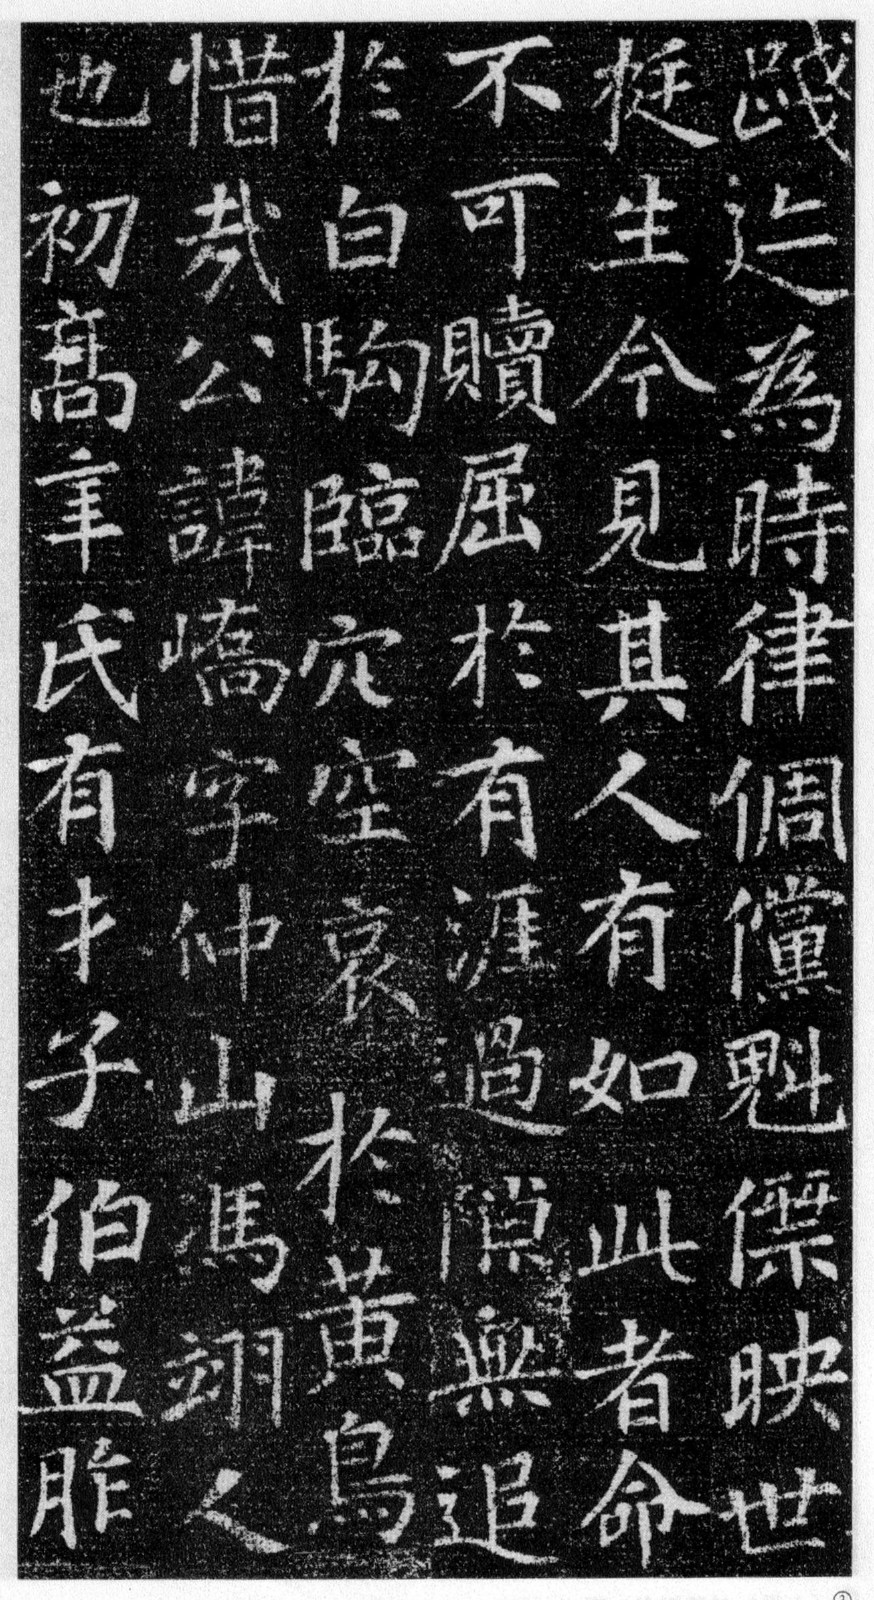 踐為時律倜儻魁傑映世
挺生今見其人有如此者命
不可贖屈於有涯過隙無追
於白駒臨穴空哀於黄鳥
惜哉公諱嶠字仲山馮翊人
也初髙辛氏有才子伯益胙
②